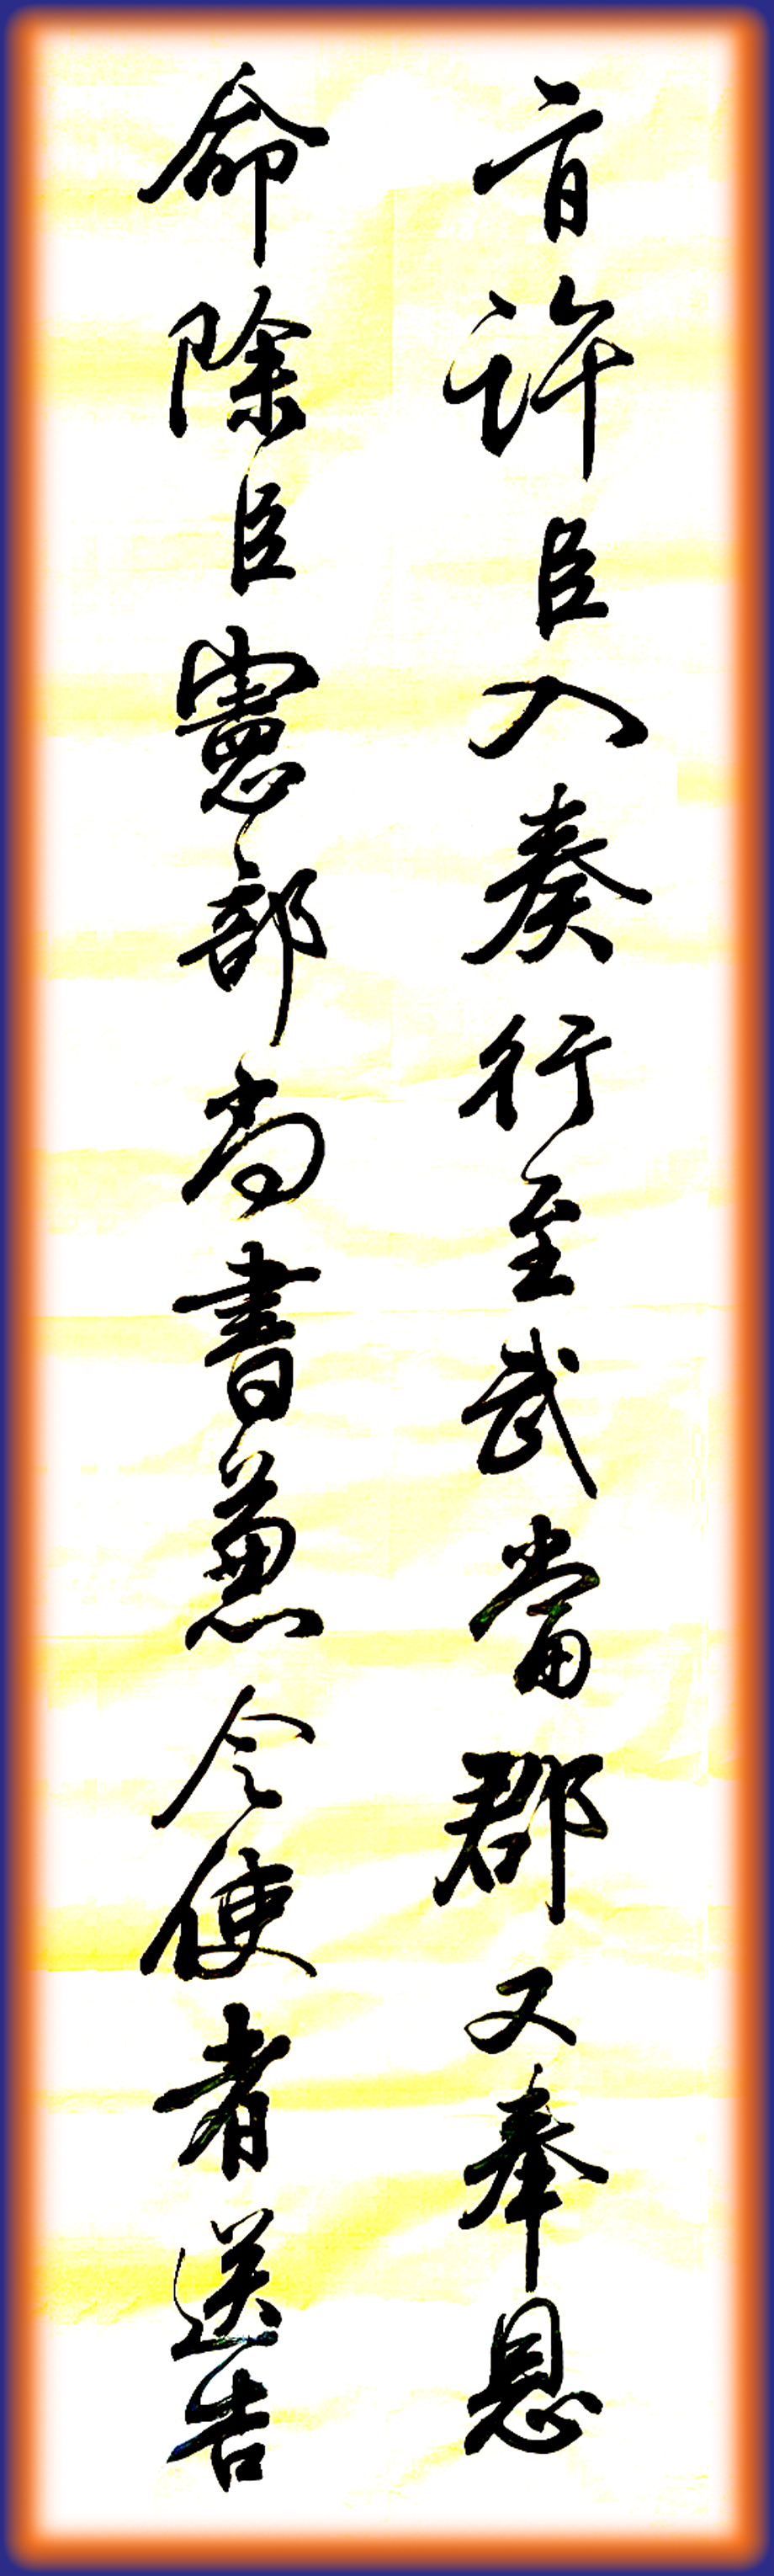 旨許臣入奏行至武當郡又奉恩
命除臣憲部尚書兼令使者送告